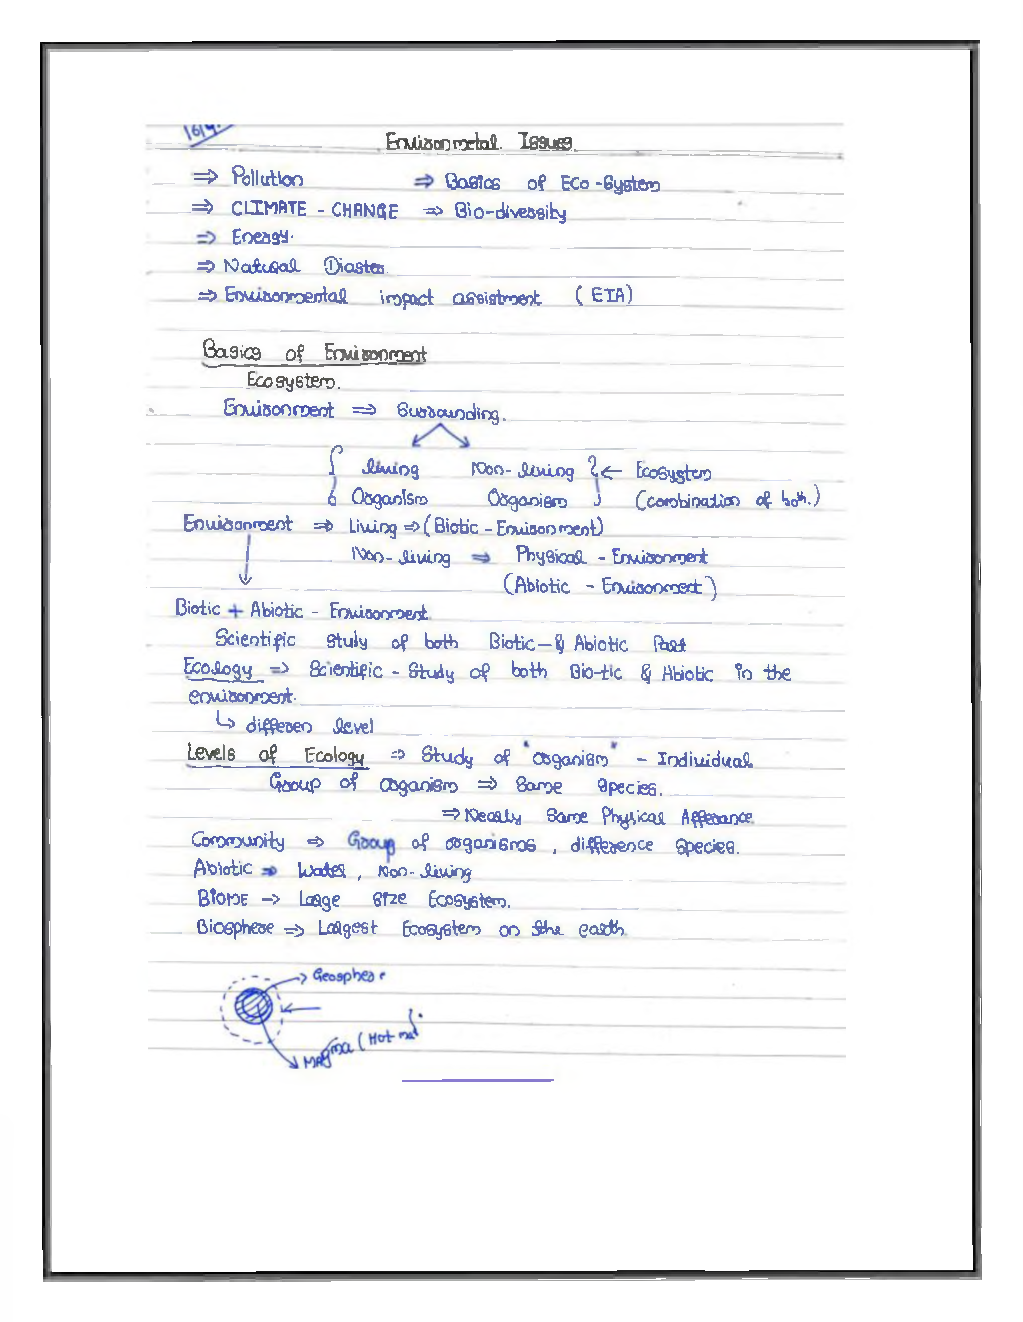 16/4.
Envisonmetal. Issues.
⇒ Pollution ⇒ Basics of Eco-System
⇒ CLIMATE - CHANGE ⇒ Bio-diversity
⇒ Energy.
⇒ Natural Diaster
⇒ Environmental impact assistment (EIA)
Basics of Environment
Ecosystem.
Environment ⇒ Surrounding.
living Non-living ← Ecosystem
Organism Organism (combination of both.)
Environment ⇒ Living ⇒ (Biotic - Environment)
Non-living ⇒ Physical - Environment
(Abiotic - Environment)
Biotic + Abiotic - Environment.
Scientific study of both Biotic - & Abiotic Part
Ecology ⇒ Scientific - Study of both Bio-tic & Abiotic in the
environment.
↳ differen level
Levels of Ecology ⇒ Study of "organism" - Individual
Group of organism ⇒ Same species.
⇒ Nearly Same Physical Apperance
Community ⇒ Group of organisms, difference species.
Abiotic ⇒ Water, Non-living
BIOME → Large size Ecosystem.
Biosphere ⇒ Largest Ecosystem on the earth
→ Geosphere
←
Magma (Hot